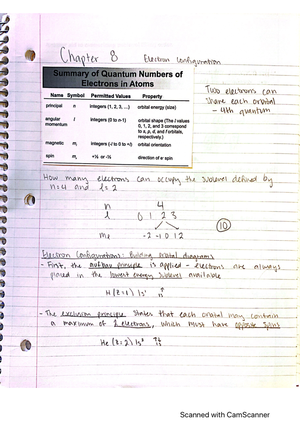 Chapter 8
Electron Configuration
Summary of Quantum Numbers of
Electrons in Atoms
Name Symbol Permitted Values Property
principal n integers (1, 2, 3, ...) orbital energy (size)
angular momentum l integers (0 to n-1) orbital shape (The l values 0, 1, 2, and 3 correspond to s, p, d, and f orbitals, respectively.)
magnetic mₗ integers (-l to 0 to +l) orbital orientation
spin mₛ +½ or -½ direction of e⁻ spin
Two electrons can
share each orbital
- 4th quantum
How many electrons can occupy the sublevel defined by
n=4 and l=2
n 4
l 0 1 2 3
mₗ -2 -1 0 1 2
10
Electron Configurations: Building orbital diagrams
- First, the aufbau principle is applied - electrons are always
placed in the lowest energy sublevel available
H (Z=1) 1s¹ ↑
1s
- The exclusion principle states that each orbital may contain
a maximum of 2 electrons, which must have opposite spins
He (Z=2) 1s² ↑↓
1s
Scanned with CamScanner